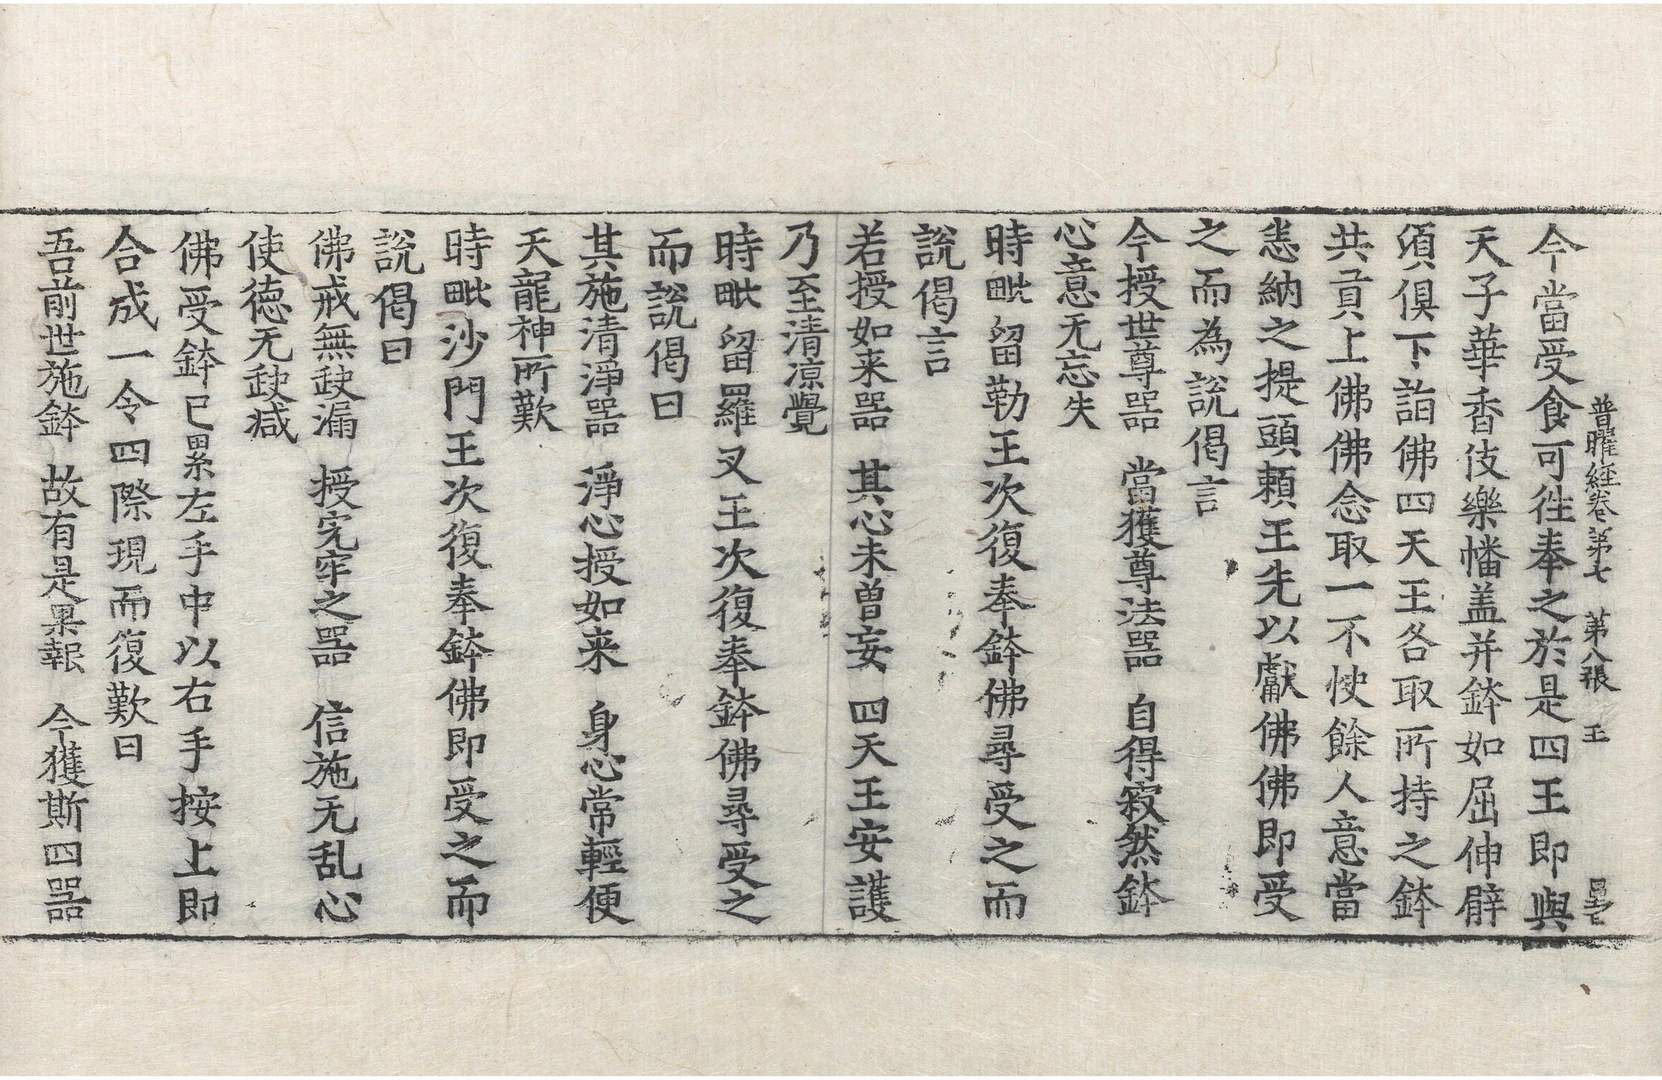 普曜經卷第七　第八張　王
今當受食可往奉之於是四王即與
天子華香伎樂幡盖并鉢如屈伸臂
須俱下詣佛四天王各取所持之鉢
共貢上佛佛念取一不快餘人意當
悉納之提頭賴王先以獻佛佛即受
之而為說偈言
今授世尊器　當獲尊法器　自得寂然鉢
心意无忘失
時毗留勒王次復奉鉢佛尋受之而
說偈言
若授如来器　其心未曾妄　四天王安護
乃至清凉覺
時毗留羅叉王次復奉鉢佛尋受之
而說偈曰
其施清淨器　淨心授如来　身心常輕便
天龍神所歎
時毗沙門王次復奉鉢佛即受之而
說偈曰
佛戒無缺漏　授完牢之器　信施无乱心
使德无缺减
佛受鉢已累左手中以右手按上即
合成一令四際現而復歎曰
吾前世施鉢　故有是果報　今獲斯四器